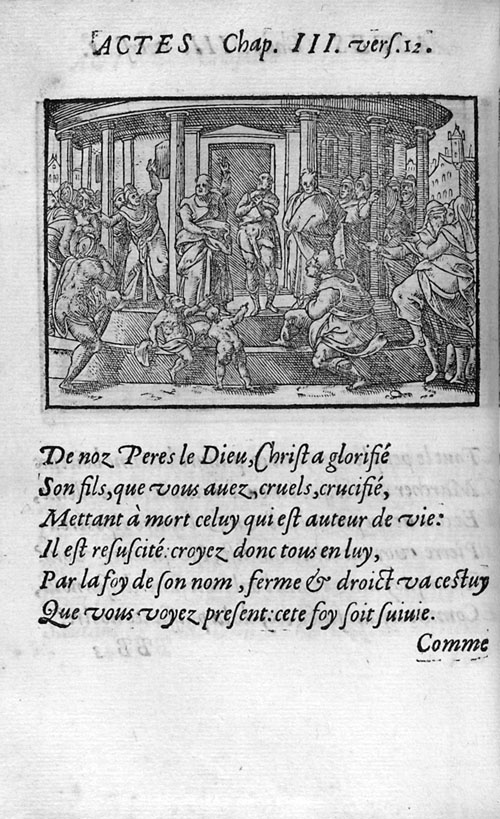 ACTES. Chap. III. vers. 12.
De noz Peres le Dieu, Christ a glorifié
Son fils, que vous auez, cruels, crucifié,
Mettant à mort celuy qui est auteur de vie:
Il est resuscité: croyez donc tous en luy,
Par la foy de son nom, ferme & droict va cestuy
Que vous voyez present: cete foy soit suiuie.
Comme